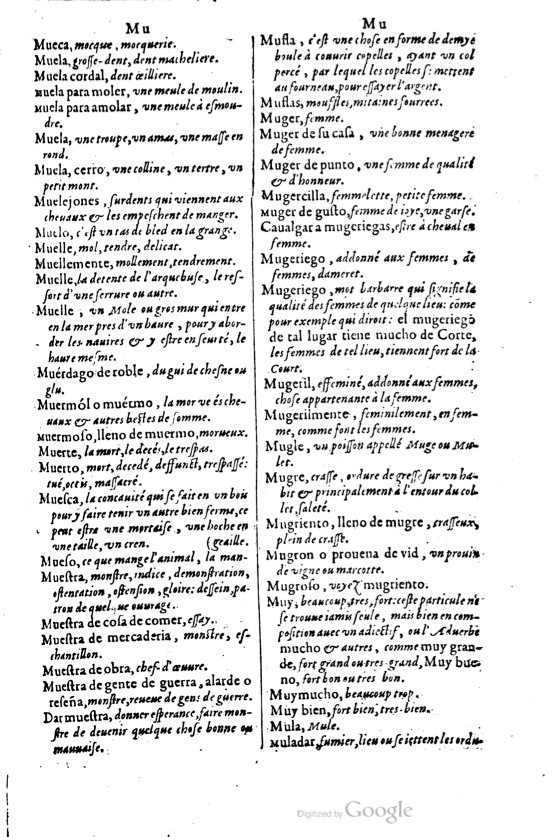 Mu
Mueca, mocque, mocquerie.
Muela, grosse-dent, dent macheliere.
Muela cordal, dent œilliere.
Muela para moler, vne meule de moulin.
Muela para amolar, vne meule à esmou-
dre.
Muela, vne troupe, vn amas, vne masse en
rond.
Muela, cerro, vne colline, vn tertre, vn
petit mont.
Muelejones, surdents qui viennent aux
cheuaux & les empeschent de manger.
Muelo, c'est vn tas de bled en la grange.
Muelle, mol, tendre, delicat.
Muellemente, mollement, tendrement.
Muelle, la detente de l'arquebuse, le res-
sort d'vne serrure ou autre.
Muelle, vn Mole ou gros mur qui entre
en la mer pres d'vn haure, pour y abor-
der les nauires & y estre en seurté, le
haure mesme.
Muérdago de roble, du gui de chesne ou
glu.
Muermól o muérmo, la morve és che-
uaux & autres bestes de somme.
Muermoso, lleno de muermo, morueux.
Muerte, la mort, le decés, le trespas.
Muerto, mort, decedé, deffunct, trespassé:
tué, occis, massacré.
Muesca, la concauité qui se fait en vn bois
pour y faire tenir vn autre bien ferme, ce
peut estre vne mortaise, vne hoche en
vne taille, vn cren. (geaille.
Mueso, ce que mange l'animal, la man-
Muestra, monstre, indice, demonstration,
ostentation, ostension, gloire: dessein, pa-
tron de quelque ouurage.
Muestra de cosa de comer, essay.
Muestra de mercaderia, monstre, es-
chantillon.
Muestra de obra, chef-d'œuure.
Muestra de gente de guerra, alarde o
reseña, monstre, reueue de gens de guerre.
Dar muestra, donner esperance, faire mon-
stre de deuenir quelque chose bonne ou
mauuaise.
Mu
Mufla, c'est vne chose en forme de demye
boule à couurir copelles, ayant vn col
percé, par lequel les copelles se mettent
au fourneau, pour essayer l'argent.
Muflas, mouffles, mitaines fourrees.
Muger, femme.
Muger de su casa, vne bonne menagere
de femme.
Muger de punto, vne femme de qualité
& d'honneur.
Mugercilla, femmelette, petite femme.
Muger de gusto, femme de ioye, vne garse.
Caualgar a mugeriegas, estre à cheual en
femme.
Mugeriego, addonné aux femmes, de
femmes, dameret.
Mugeriego, mot barbarre qui signifie la
qualité des femmes de quelque lieu: cõme
pour exemple qui diroit: el mugeriego
de tal lugar tiene mucho de Corte,
les femmes de tel lieu, tiennent fort de la
Court.
Mugeril, effeminé, addonné aux femmes,
chose appartenante à la femme.
Mugerilmente, feminilement, en fem-
me, comme font les femmes.
Mugle, vn poisson appellé Muge ou Mu-
let.
Mugre, crasse, ordure de gresse sur vn ha-
bit & principalement à l'entour du col-
let, saleté.
Mugriento, lleno de mugre, crasseux,
plein de crasse.
Mugron o prouena de vid, vn prouin
de vigne ou marcotte.
Mugroso, voyez mugriento.
Muy, beaucoup, tres, fort: ceste particule ne
se trouue iamais seule, mais bien en com-
position auec vn adiectif, ou l'Aduerbe
mucho & autres, comme muy gran-
de, fort grand ou tres-grand, Muy bue-
no, fort bon ou tres bon.
Muy mucho, beaucoup trop.
Muy bien, fort bien, tres-bien.
Mula, Mule.
Muladar, fumier, lieu ou se iettent les ordu-
Digitized by Google